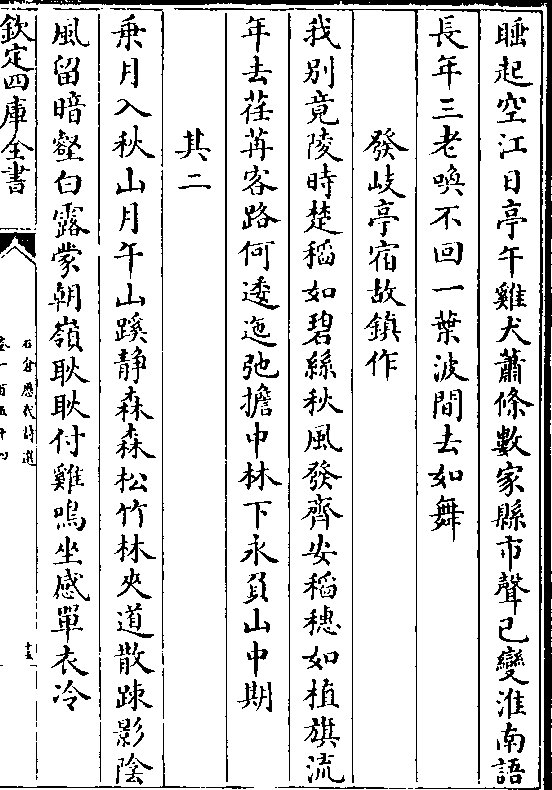 睡起空江日亭午雞犬蕭條數家縣市聲已變淮南語
長年三老喚不回一葉波間去如舞
發岐亭宿故鎮作
我別竟陵時楚稻如碧絲秋風發齊安稻穗如植旗流
年去荏苒客路何逶迤弛擔中林下永負山中期
其二
乗月入秋山月午山蹊静森森松竹林夾道散踈影陰
風留暗壑白露蒙朝嶺耿耿付雞鳴坐感單衣冷
欽定四庫全書
石倉歷代詩選
卷一百五十四